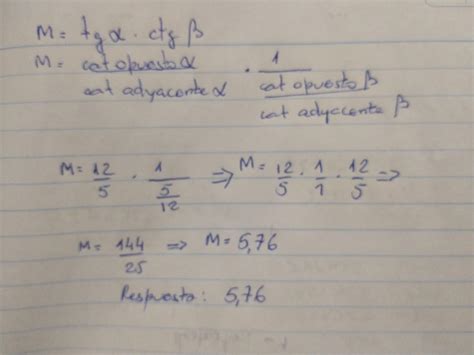 M = tg α · ctg β
M = cat opuesto α / cat adyacente α · 1 / (cat opuesto β / cat adyacente β)
M = 12/5 · 1 / (5/12) ⇒ M = 12/5 · 1/1 · 12/5 ⇒
M = 144/25 ⇒ M = 5,76
Respuesta: 5,76